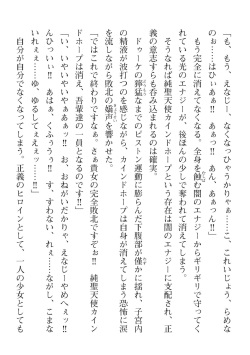 「も、もう、えなじー、なくなっへ……。これいじょう、らめな
のぉ……はひぃぃぃぃ!! あ、んあ、あぁっ、あぁっ!!」
もう完全に消えてなくなる。全身を蝕む闇のエナジーからギリギリで守ってく
れている光のエナジーが、後ほんの少しで奪われてなくなってしまう。
そうなれば純聖天使カインドホープという存在は闇のエナジーに支配され、正
義の意志すらも呑み込まれるのは確実。
ドゥーケの獰猛なまでのピストン運動に膨らんだ下腹部が僅かに揺れ、子宮内
の精液が波打つのを感じながら、カインドホープは自身が消えてしまう恐怖に涙
を流しながら敗北の嬌声を響かせた。
「ではこれで終わりですなぁ。さぁ貴女の完全敗北ですぞぉ!! 純聖天使カイン
ドホープは消え、吾輩達の一員となるのです!!」
「い、いやいやいやぁぁぁっ!! お、おねがいだかりゃ、えなじーやめへぇッ!!
んひっいぃ!! あはぁっくふぅぅぅ!! す、すわない、れぇ……ながし、こまな
いれぇぇ……ゆ、ゆるしてぇえッ……!!」
自分が自分でなくなってしまう。正義のヒロインとして、一人の少女としても